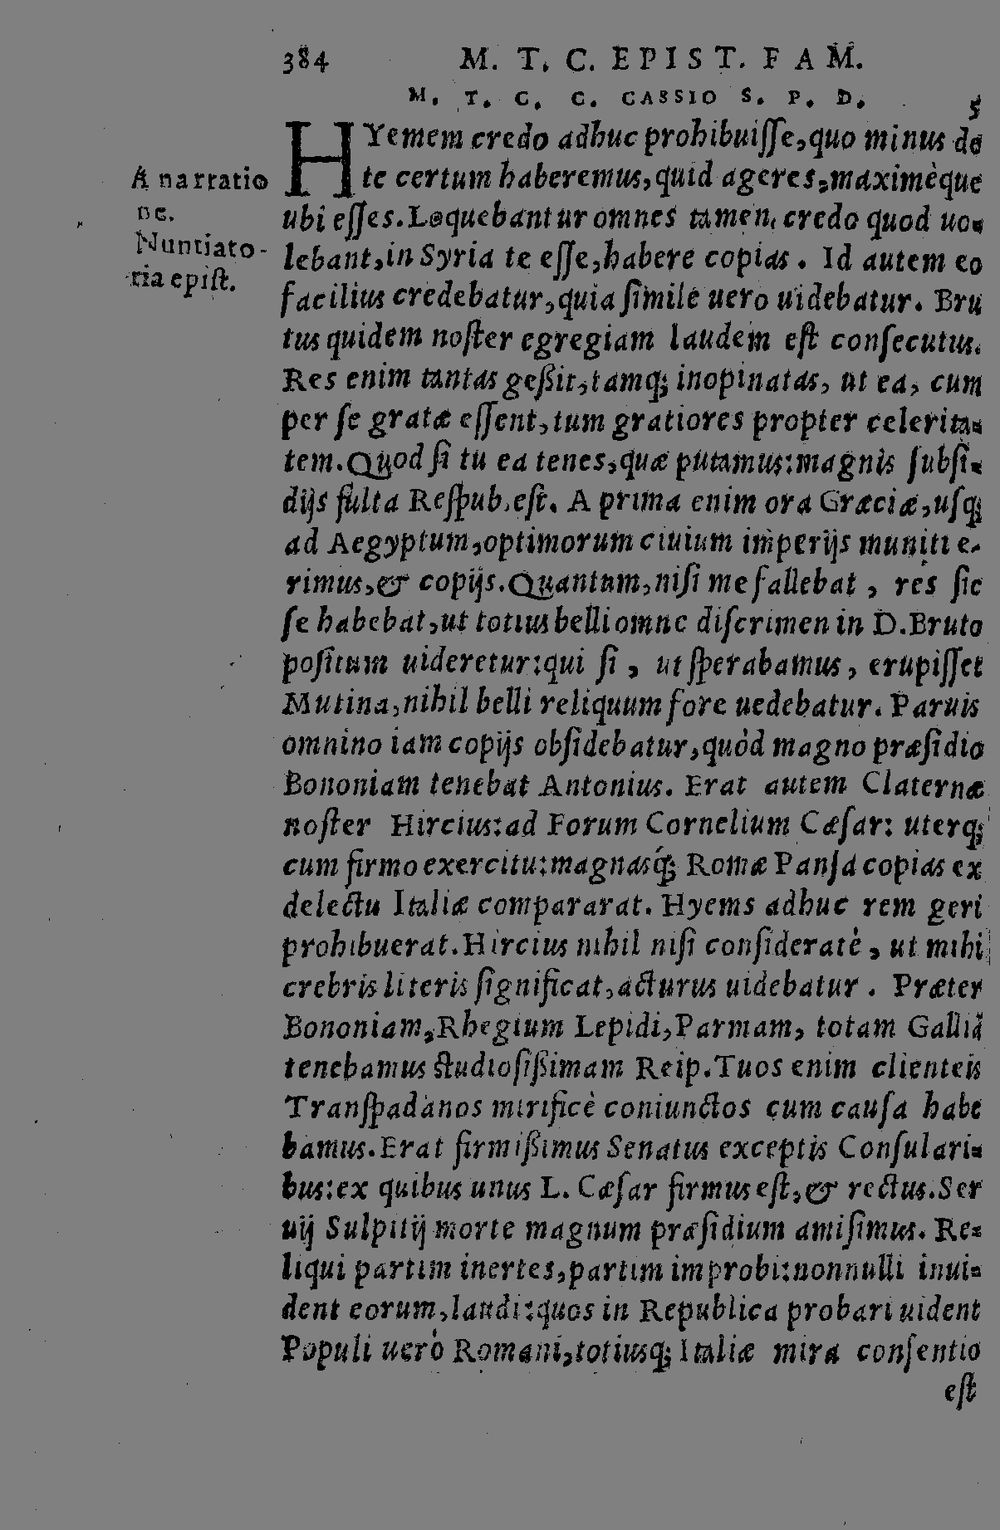 384 M. T. C. EPIST. FAM.
M. T. C. C. CASSIO S. P. D. 5
HYemem credo adhuc prohibuisse, quo minus de
te certum haberemus, quid ageres, maximè que
ubi esses. Loquebantur omnes tamen, credo quod uo-
lebant, in Syria te esse, habere copias. Id autem eo
facilius credebatur, quia simile uero uidebatur. Bru
tus quidem noster egregiam laudem est consecutus.
Res enim tantas geßit, tamq; inopinatas, ut ea, cum
per se gratæ essent, tum gratiores propter celerita-
tem. Quod si tu ea tenes, quæ putamus: magnis subsi-
dijs fulta Respub. est. A prima enim ora Græciæ, usq;
ad Aegyptum, optimorum ciuium imperijs muniti e-
rimus, & copijs. Quantum, nisi me fallebat, res sic
se habebat, ut totius belli omne discrimen in D. Bruto
positum uideretur: qui si, ut sperabamus, erupisset
Mutina, nihil belli reliquum fore uedebatur. Paruis
omnino iam copijs obsidebatur, quòd magno præsidio
Bononiam tenebat Antonius. Erat autem Claternæ
noster Hircius: ad Forum Cornelium Cæsar: uterq;
cum firmo exercitu: magnasq́; Romæ Pansa copias ex
delectu Italiæ compararat. Hyems adhuc rem geri
prohibuerat. Hircius nihil nisi consideratè, ut mihi
crebris literis significat, acturus uidebatur. Præter
Bononiam, Rhegium Lepidi, Parmam, totam Galliā
tenebamus studiosißimam Reip. Tuos enim clienteis
Transpadanos mirificè coniunctos cum causa habe
bamus. Erat firmißimus Senatus exceptis Consulari-
bus: ex quibus unus L. Cæsar firmus est, & rectus. Ser
uij Sulpitij morte magnum præsidium amisimus. Re-
liqui partim inertes, partim improbi: nonnulli inui-
dent eorum, laudi: quos in Republica probari uident
Populi uerò Romani, totiusq; Italiæ mira consensio
est
A narratio
ne.
Nuntiato-
ria epist.